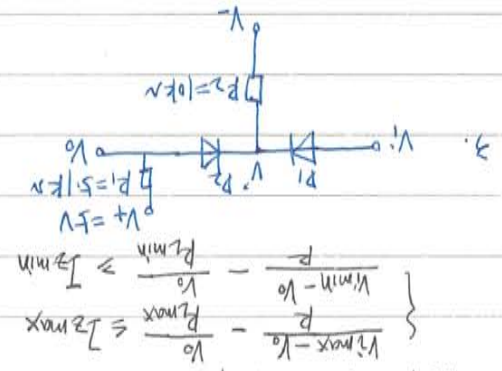 { (Vimax - Vo)/R - Vo/RLmax ≤ Izmax
(Vimin - Vo)/R - Vo/RLmin ≥ Izmin
V+ = 5V
R1 = 5.1kΩ
3. Vi D1 V' D2 Vo
R2 = 10kΩ
V-